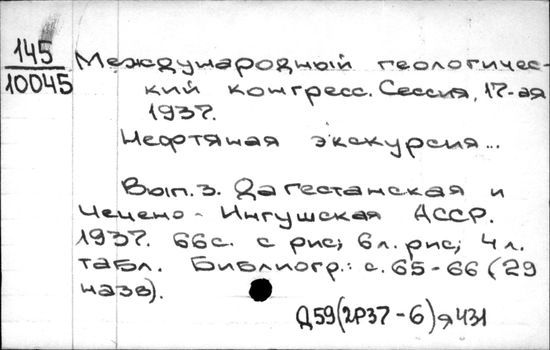 145
10045
Международный геологичес-
кий конгресс. Сессия, 17-ая
1937.
Нефтяная экскурсия...
Вып. 3. Дагестанская и
Чечено-Ингушская АССР.
1937. 66с. с рис; 6л. рис; 4л.
табл. Библиогр.: с. 65-66 (29
назв).
Д59(2Р37-6)я431